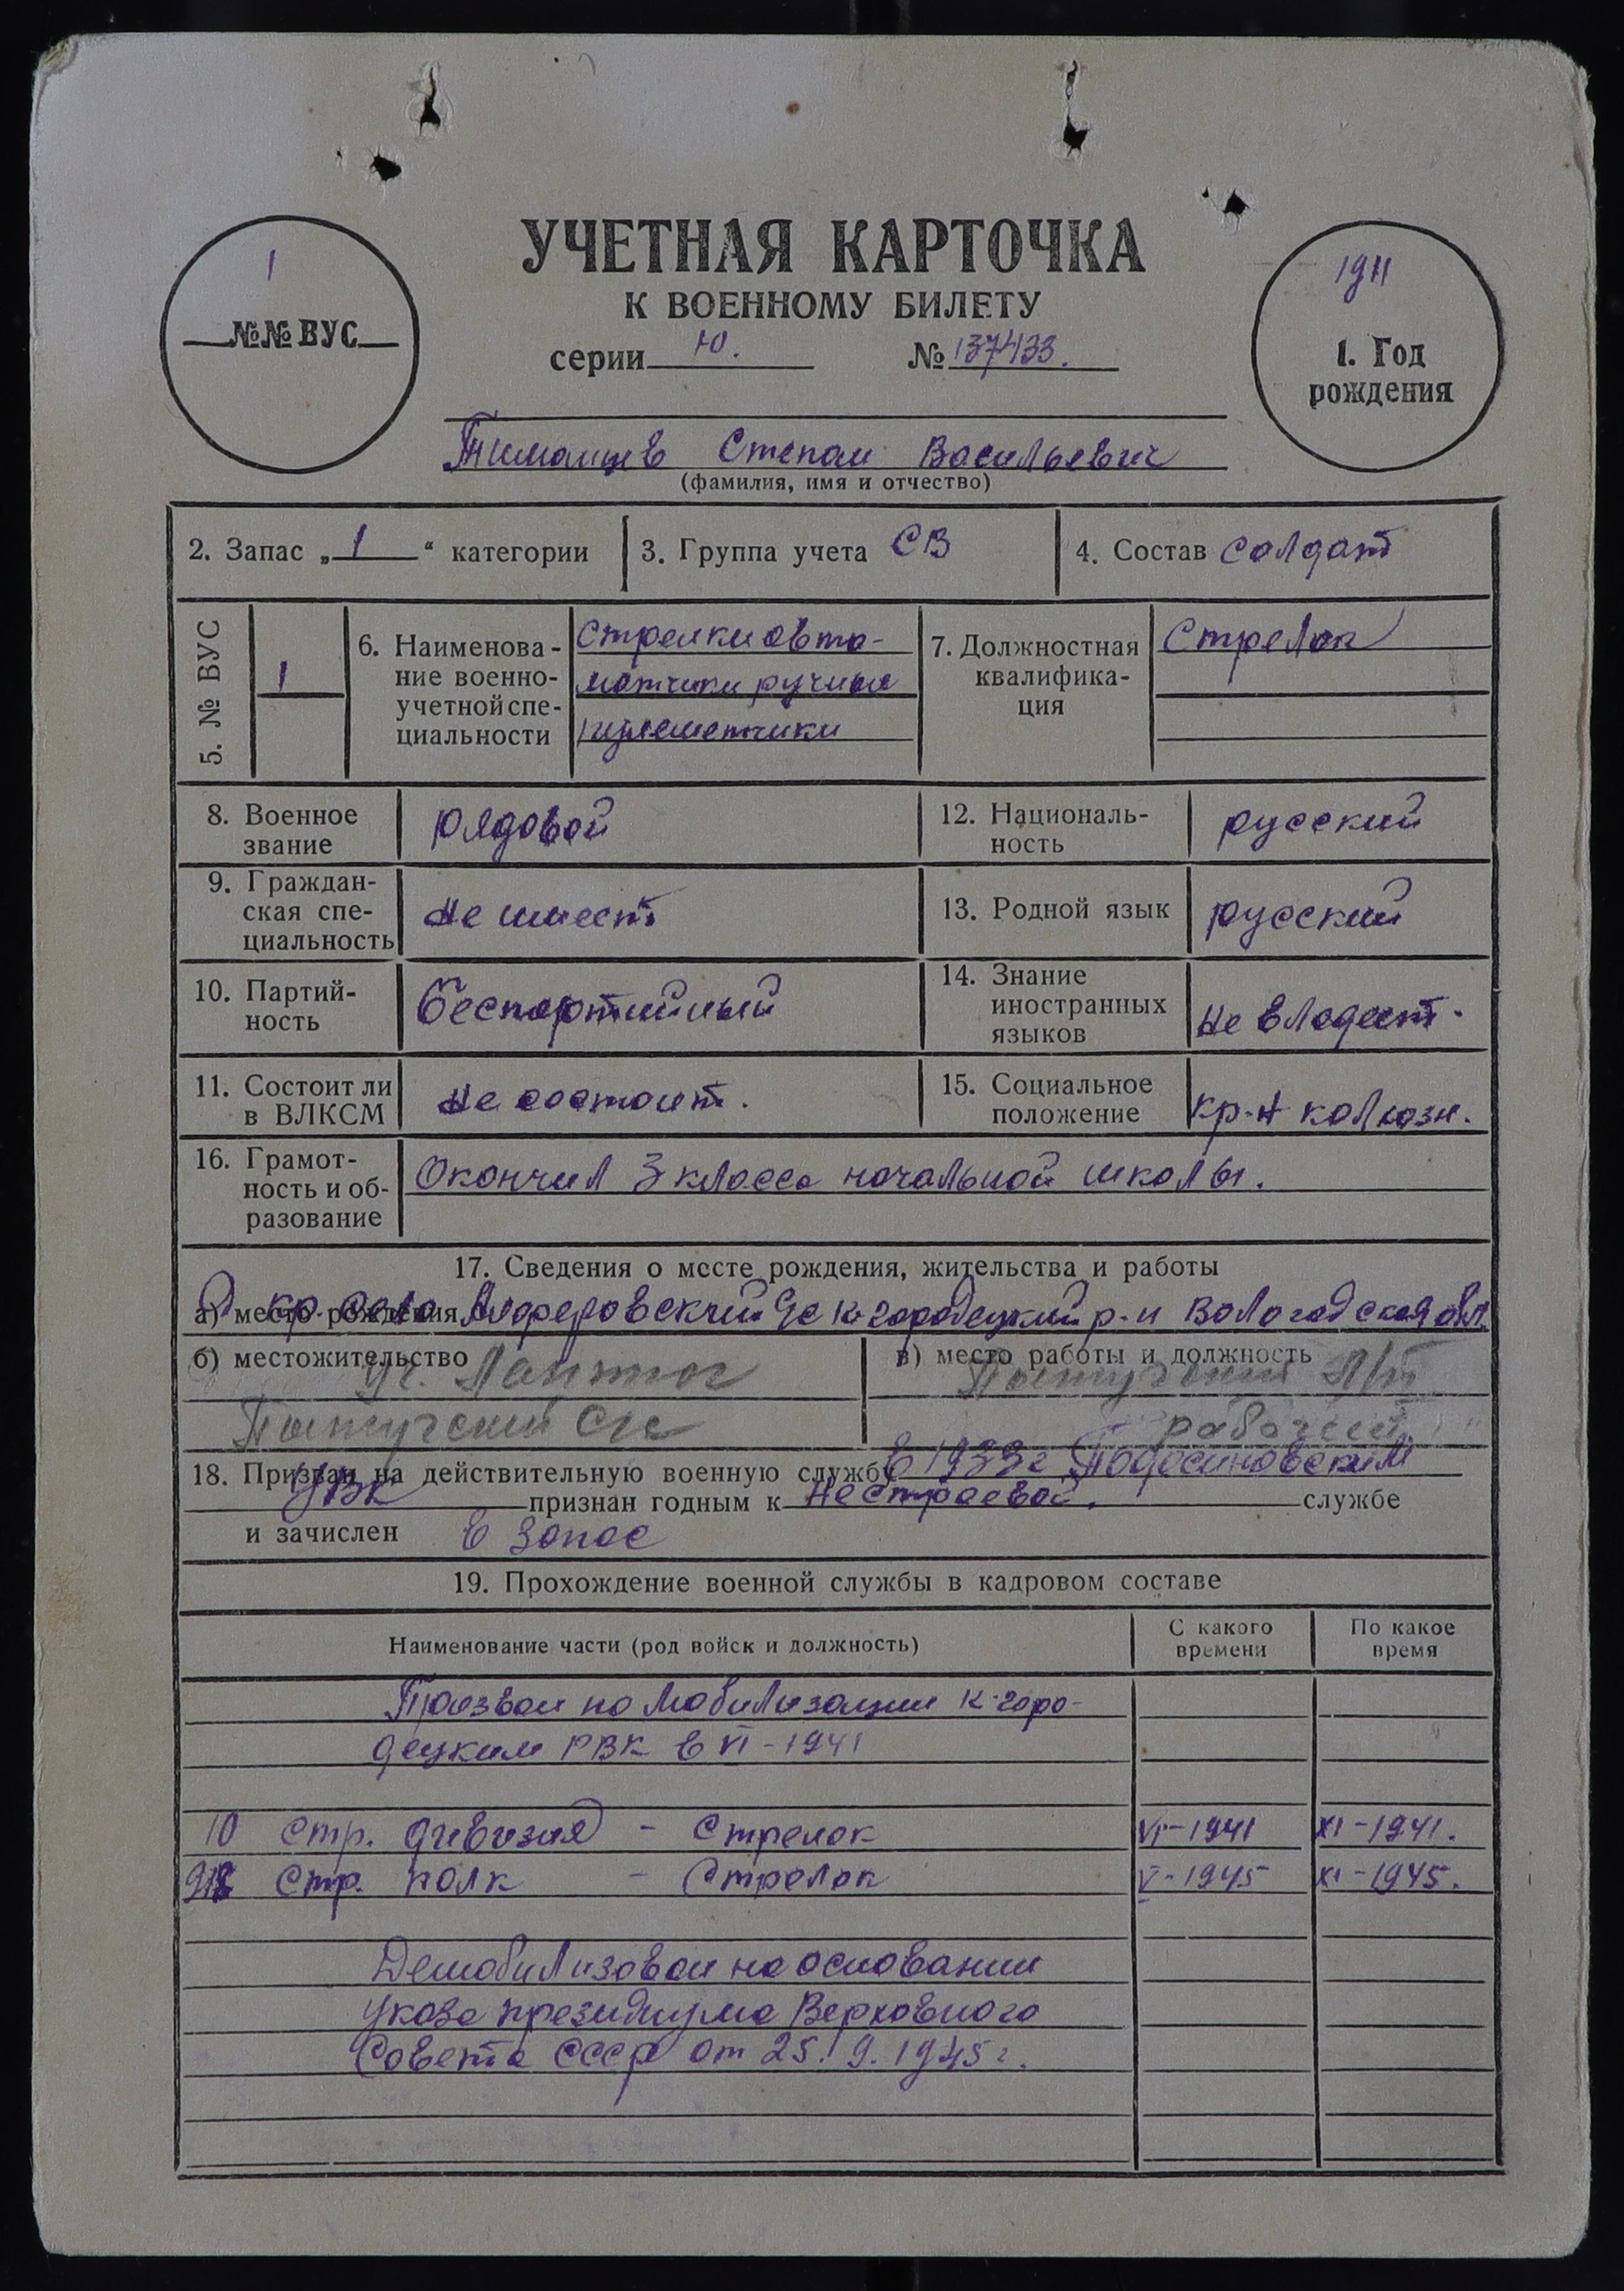 УЧЕТНАЯ КАРТОЧКА
К ВОЕННОМУ БИЛЕТУ
серии Ю. № 137433.
1
№№ ВУС
1911
1. Год
рождения
Тиманцев Степан Васильевич
(фамилия, имя и отчество)
2. Запас „1“ категории
3. Группа учета СВ
4. Состав солдат
5. № ВУС
1
6. Наименова-
ние военно-
учетной спе-
циальности
Стрелки авто-
матчики ручные
пулеметчики
7. Должностная
квалифика-
ция
Стрелок
8. Военное
звание
рядовой
12. Националь-
ность
русский
9. Граждан-
ская спе-
циальность
не имеет
13. Родной язык
русский
10. Партий-
ность
беспартийный
14. Знание
иностранных
языков
не владеет.
11. Состоит ли
в ВЛКСМ
не состоит.
15. Социальное
положение
кр-н колхозн.
16. Грамот-
ность и об-
разование
Окончил 3 класса начальной школы.
17. Сведения о месте рождения, жительства и работы
а) место рождения Алферовский с/с К-городецкий р-н Вологодская обл.
б) местожительство
уч.
с/с
в) место работы и должность
рабочий
18. Призван на действительную военную службу в 1933г Подосиновским
УВК признан годным к нестроевой. службе
и зачислен в запас
19. Прохождение военной службы в кадровом составе
Наименование части (род войск и должность)
С какого
времени
По какое
время
Призван по мобилизации К-горо-
децким РВК в VI-1941
10 стр. дивизия - Стрелок VI-1941 XI-1941.
стр. полк - Стрелок V-1945 XI-1945.
Демобилизован на основании
указа президиума Верховного
Совета СССР от 25.9.1945г.